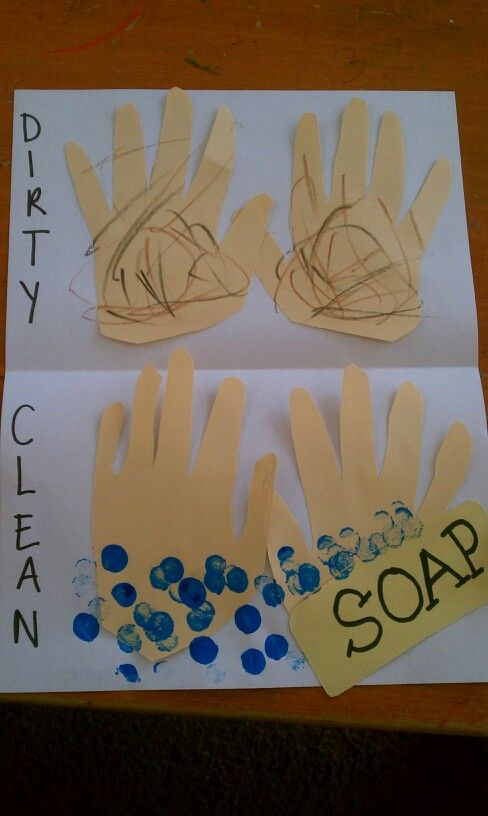 DIRTY
CLEAN
SOAP